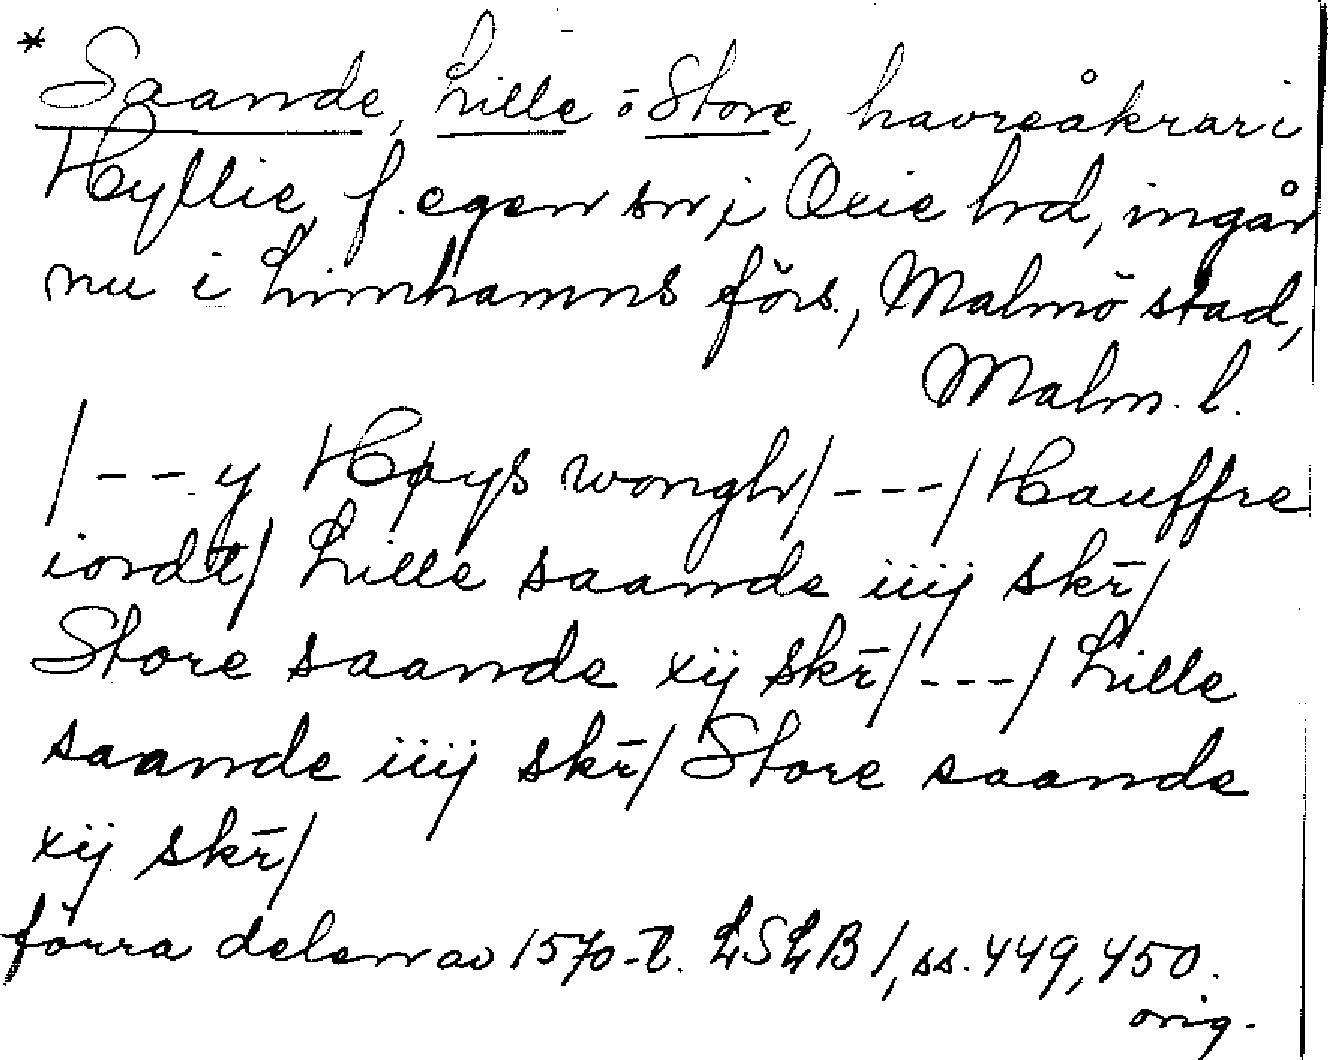 * Saande, Lille o Store, havreåkrar i
Hyllie, f. egen sn i Oxie hd, ingår
nu i Limhamns förs., Malmö stad,
Malm. l.
/ - - y Høys wongh/ - - - / Hauffre
iordt/ Lille saande iiij skr̄/
Store saande xij skr̄/ - - - / Lille
saande iiij skr̄/ Store saande
xij skr̄/
förra delen av 1570-t. LSLB 1, ss. 449, 450.
orig.